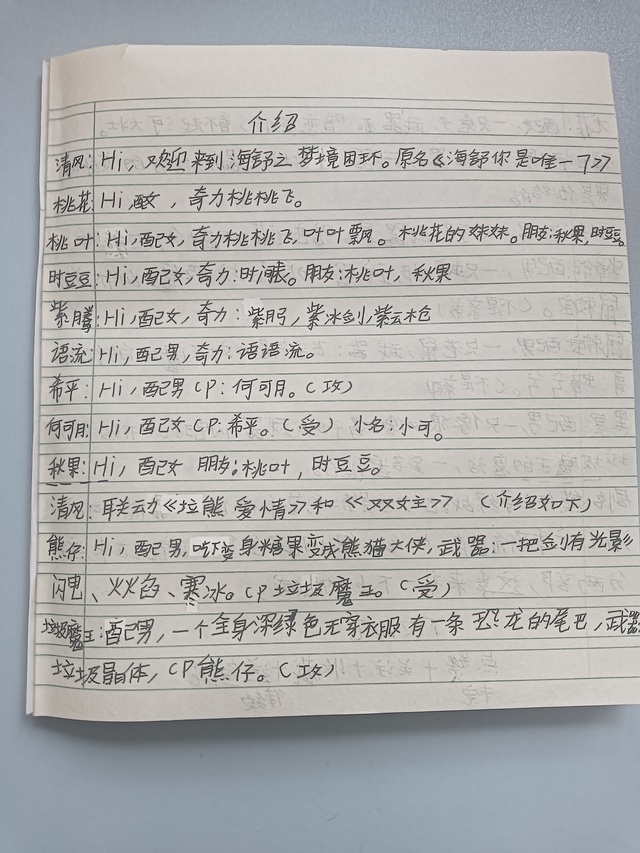 介绍
清风: Hi, 欢迎来到海舒之梦境困环。原名《海舒你是唯一了》
桃花: Hi, 配女, 奇力桃桃飞。
桃叶: Hi, 配女, 奇力桃桃飞, 叶叶飘。桃花的妹妹。朋友: 秋果, 时豆豆。
时豆豆: Hi, 配女, 奇力: 时间。朋友: 桃叶, 秋果
紫腾: Hi, 配女, 奇力: 紫冰剑, 紫云枪
语流: Hi, 配男, 奇力: 语语流。
希平: Hi, 配男 CP: 何可月。(攻)
何可月: Hi, 配女 CP: 希平。(受) 小名: 小可。
秋果: Hi, 配女 朋友: 桃叶, 时豆豆。
清风: 联动《垃熊爱情》和《双女主》 (介绍如下)
熊仔: Hi, 配男, 吃下变身糖果变成熊猫大侠, 武器: 一把剑有光影
闪电、火焰、寒冰。CP 垃圾魔王。(受)
垃圾魔王: 配男, 一个全身深绿色无穿衣服有一条恐龙的尾巴, 武器
垃圾晶体, CP 熊仔。(攻)